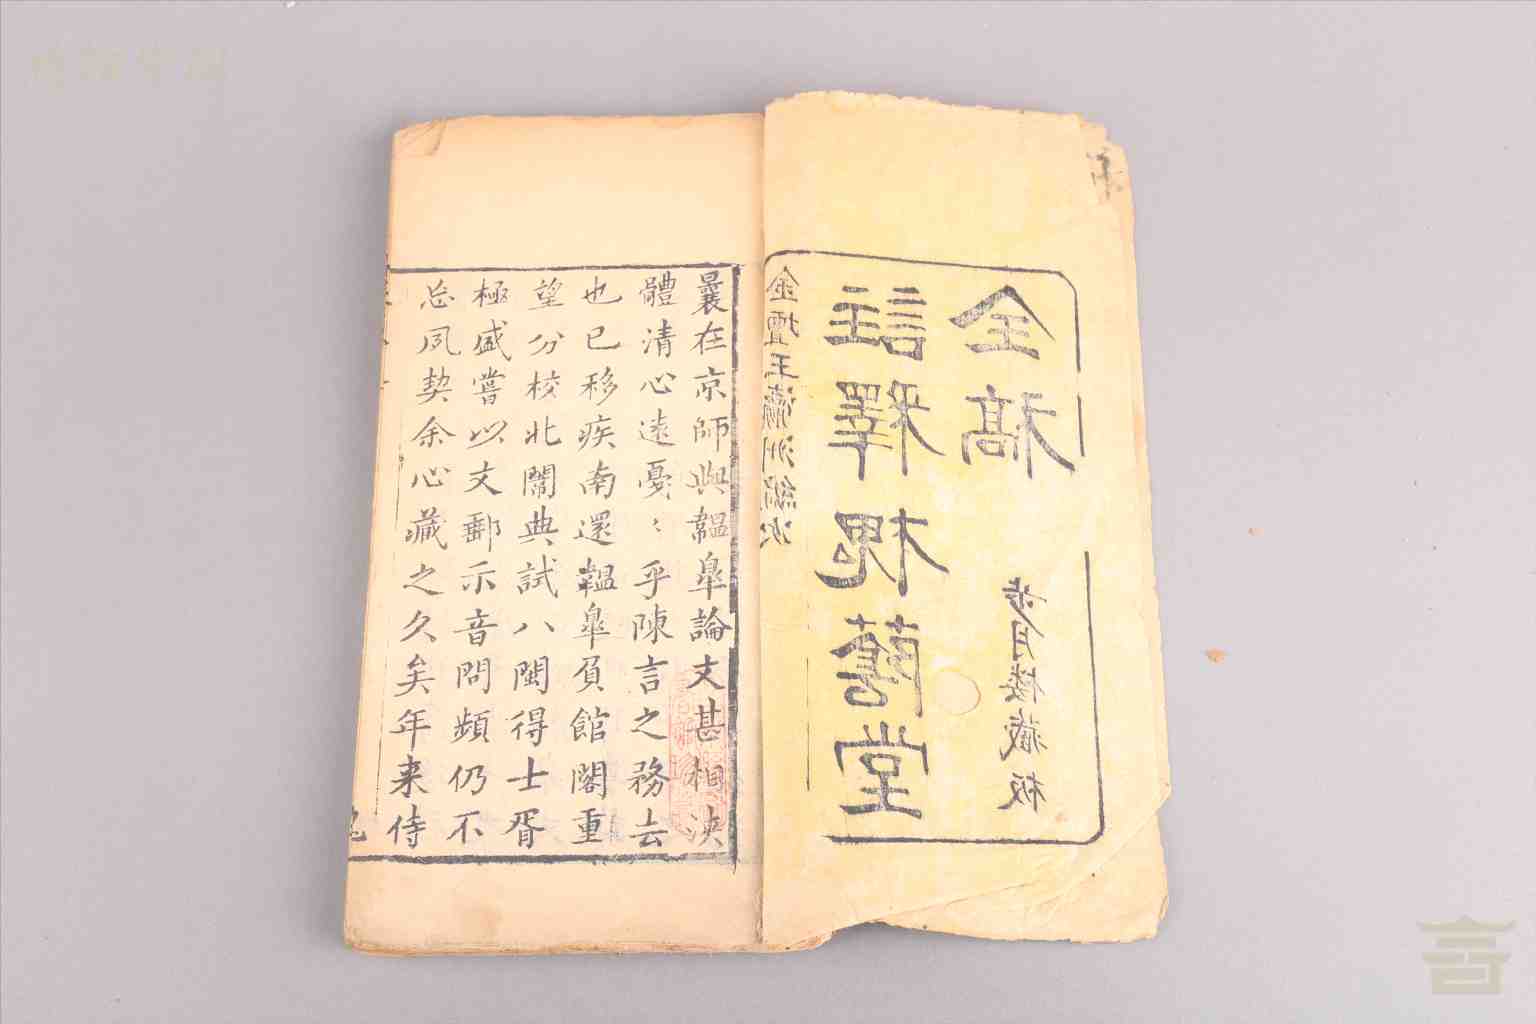 金壇王瀛洲編次
註釋槐蔭堂
全稿
步月樓藏板
曩在京師與韞臯論文甚相浹
體清心遠憂〻乎陳言之務去
也已移疾南還韞臯負館閣重
望分校北闈典試八閩得士胥
極盛嘗以文郵示音問頻仍不
忘夙契余心藏之久矣年来侍